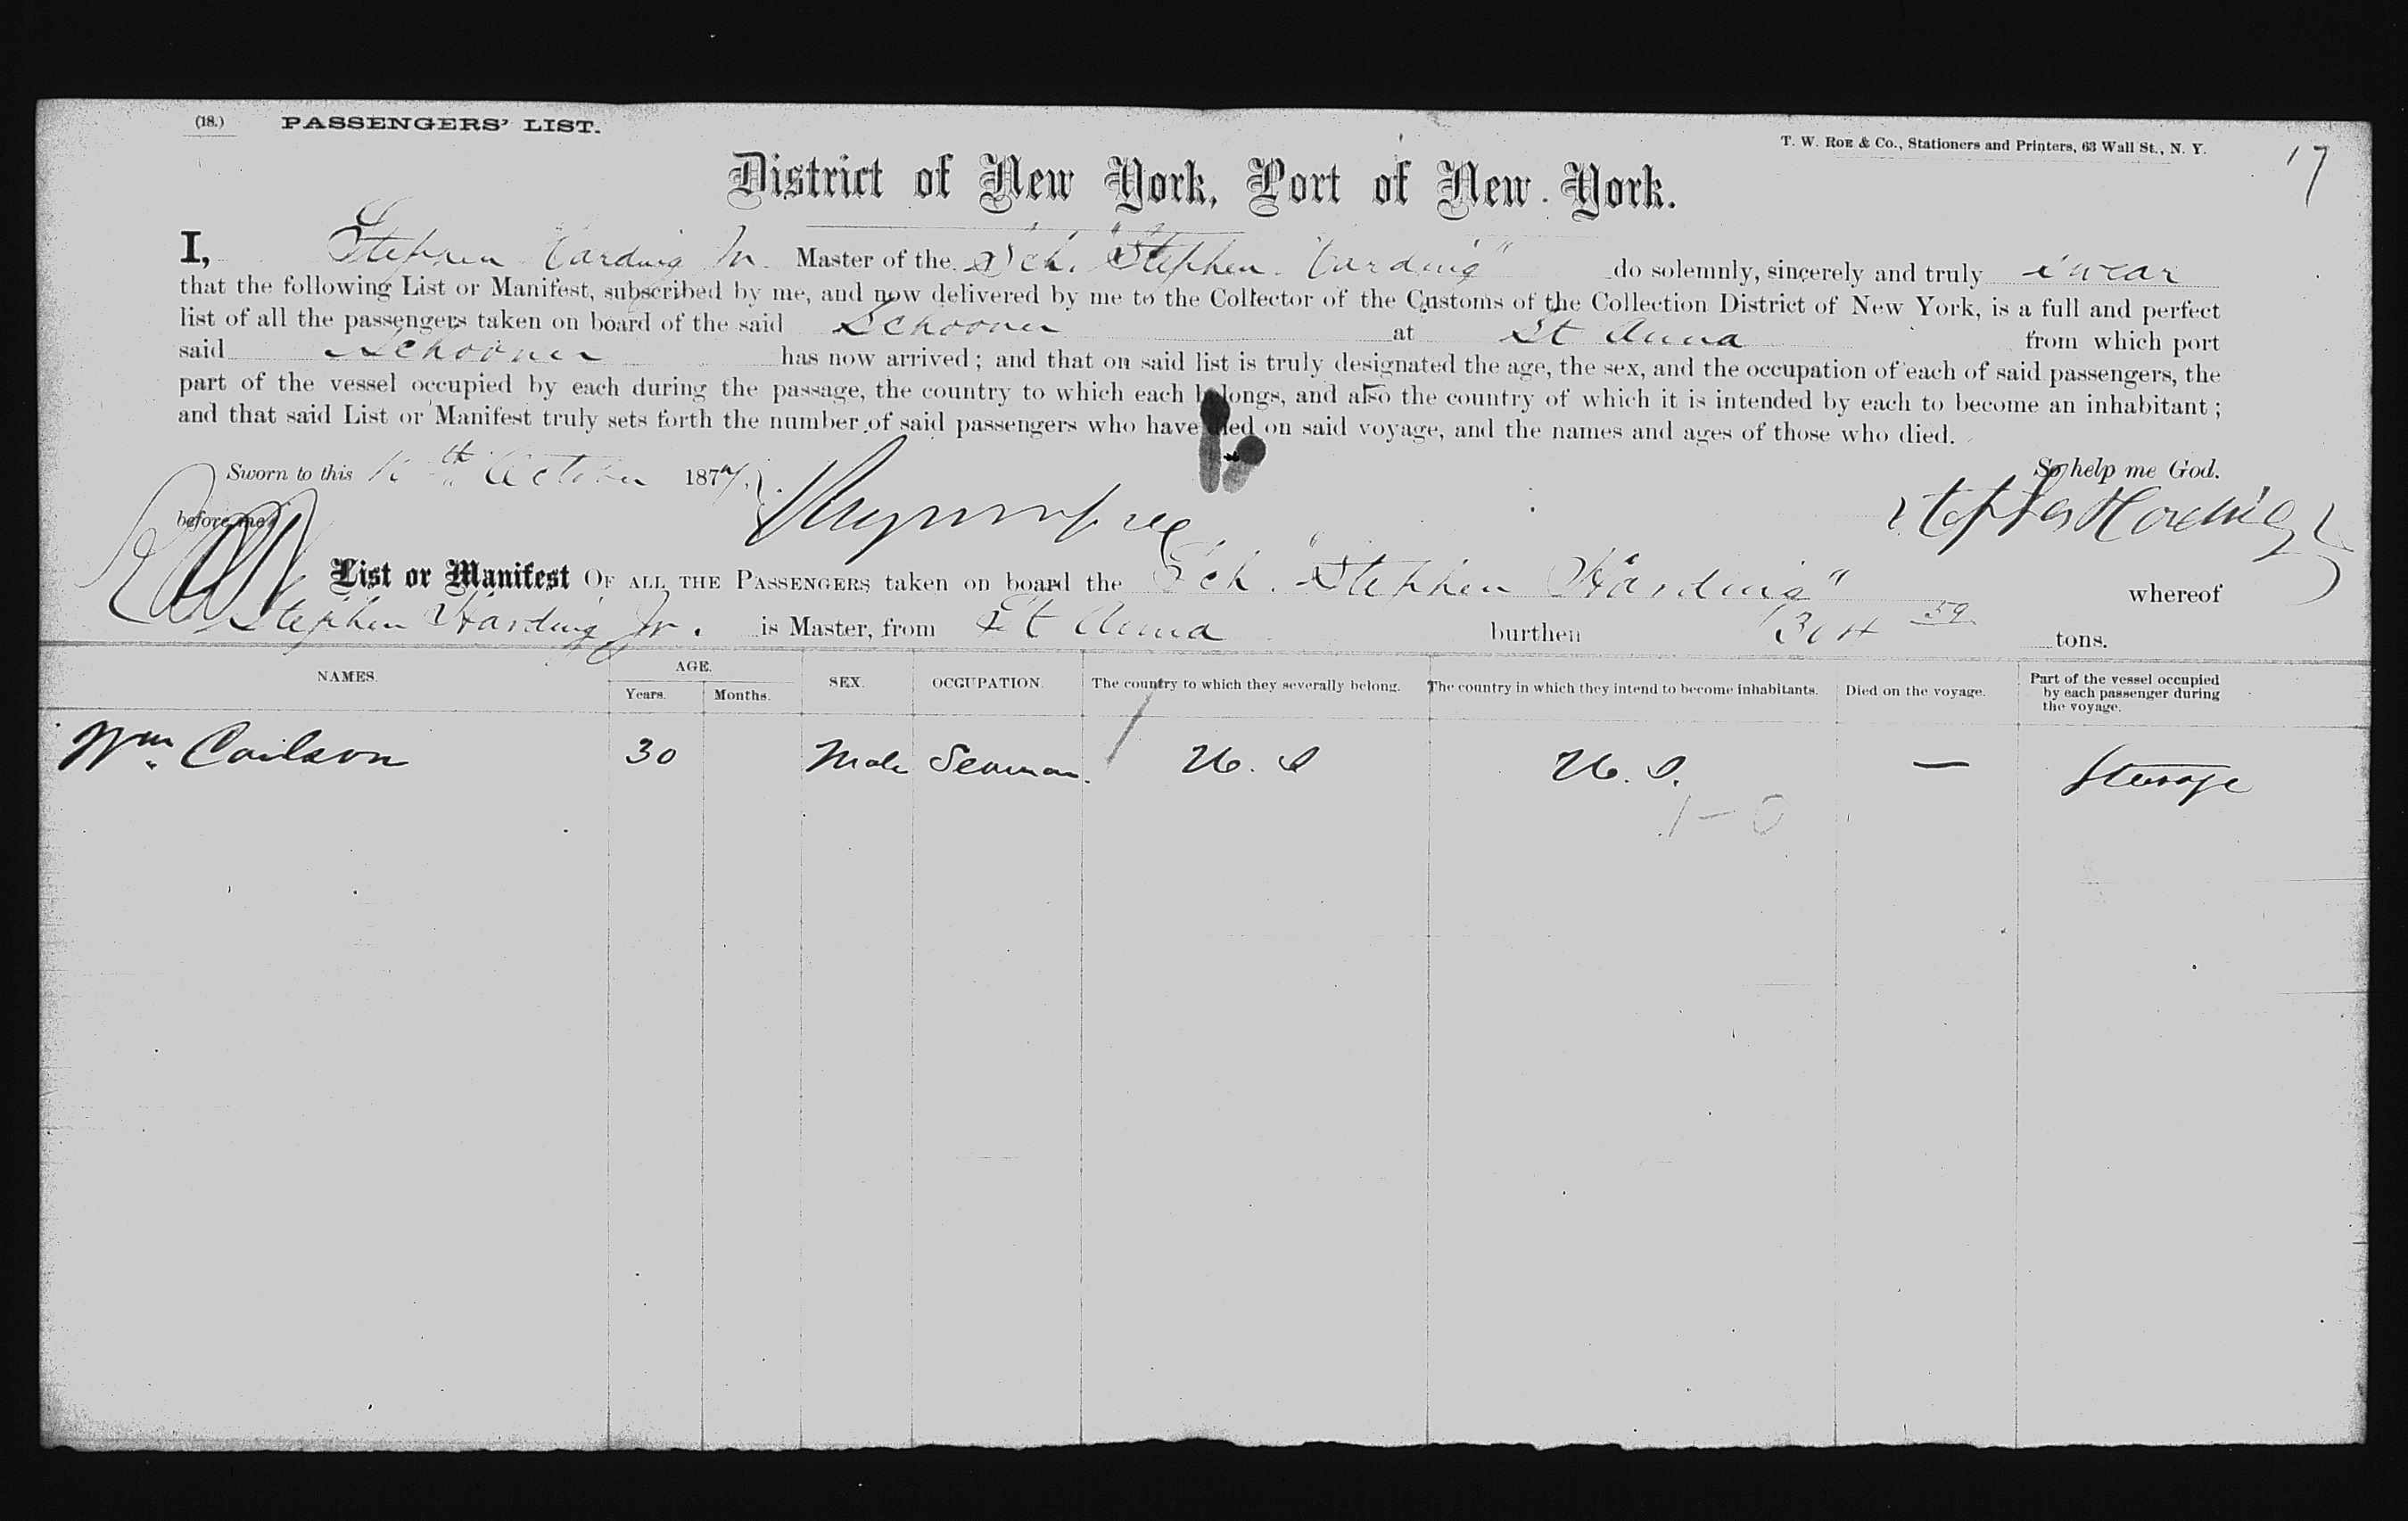 (18.) PASSENGERS' LIST.
T. W. Roe & Co., Stationers and Printers, 63 Wall St., N. Y.
17
District of New York, Port of New York.
I, Stephen Harding Jr. Master of the Sch. "Stephen Harding" do solemnly, sincerely and truly swear
that the following List or Manifest, subscribed by me, and now delivered by me to the Collector of the Customs of the Collection District of New York, is a full and perfect
list of all the passengers taken on board of the said Schooner at St Anna from which port
said Schooner has now arrived; and that on said list is truly designated the age, the sex, and the occupation of each of said passengers, the
part of the vessel occupied by each during the passage, the country to which each belongs, and also the country of which it is intended by each to become an inhabitant;
and that said List or Manifest truly sets forth the number of said passengers who have died on said voyage, and the names and ages of those who died.
Sworn to this th October 187
So help me God.
before me
Stephen Harding Jr
List or Manifest OF ALL THE PASSENGERS taken on board the Sch. "Stephen Harding" whereof
Stephen Harding Jr. is Master, from St Anna burthen 304 59 tons.
NAMES. AGE. Years. Months. SEX. OCCUPATION. The country to which they severally belong. The country in which they intend to become inhabitants. Died on the voyage. Part of the vessel occupied by each passenger during the voyage.
Wm. Carlson 30 Male Seaman. U. S U. S. — Steerage
1-0